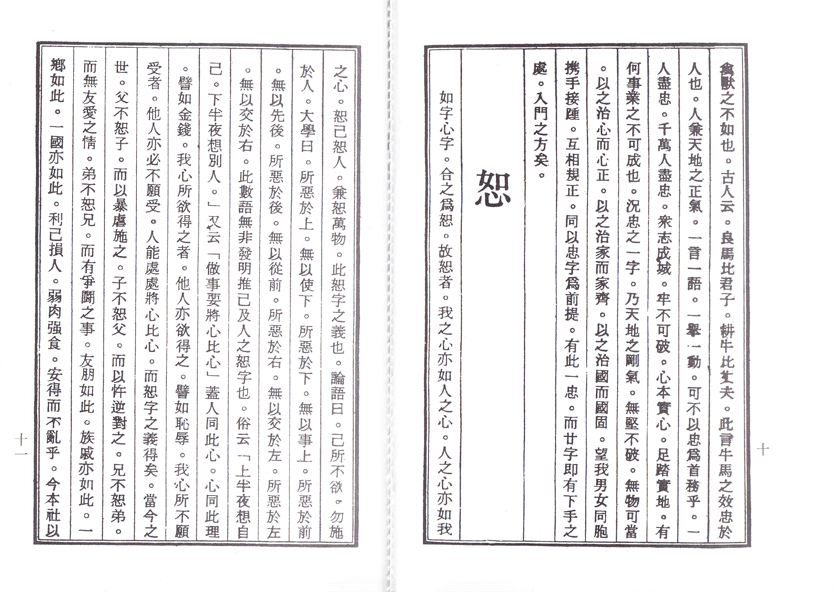 禽獸之不如也。古人云。良馬比君子。耕牛比丈夫。此言牛馬之效忠於
人也。人兼天地之正氣。一言一語。一舉一動。可不以忠爲首務乎。一
人盡忠。千萬人盡忠。衆志成城。牢不可破。心本實心。足踏實地。有
何事業之不可成也。況忠之一字。乃天地之剛氣。無堅不破。無物可當
。以之治心而心正。以之治家而家齊。以之治國而國固。望我男女同胞
携手接踵。互相規正。同以忠字爲前提。有此一忠。而廿字即有下手之
處。入門之方矣。
恕
如字心字。合之爲恕。故恕者。我之心亦如人之心。人之心亦如我
十
之心。恕己恕人。兼恕萬物。此恕字之義也。論語曰。己所不欲。勿施
於人。大學曰。所惡於上。無以使下。所惡於下。無以事上。所惡於前
。無以先後。所惡於後。無以從前。所惡於右。無以交於左。所惡於左
。無以交於右。此數語無非發明推己及人之恕字也。俗云「上半夜想自
己。下半夜想別人。」又云「做事要將心比心」蓋人同此心。心同此理
。譬如金錢。我心所欲得之者。他人亦欲得之。譬如恥辱。我心所不願
受者。他人亦必不願受。人能處處將心比心。而恕字之義得矣。當今之
世。父不恕子。而以暴虐施之。子不恕父。而以忤逆對之。兄不恕弟。
而無友愛之情。弟不恕兄。而有爭鬪之事。友朋如此。族戚亦如此。一
鄉如此。一國亦如此。利己損人。弱肉强食。安得而不亂乎。今本社以
十一